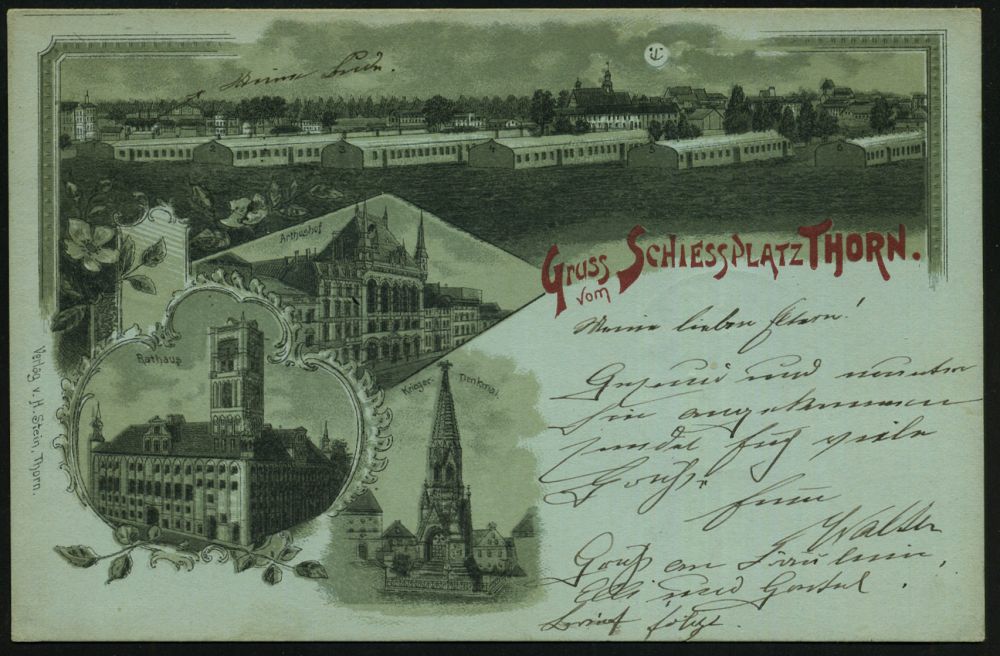 Meine Bude.
Gruss vom Schiessplatz Thorn.
Arthushof
Rathaus
Krieger-Denkmal.
Verlag v. H. Stein, Thorn.
Meine lieben Eltern!
Gesund und munter
hier angekommen
sendet Euch viele
Grüße
Euer
Walter
Gruß an Fräulein,
Elli und Gretel.
Brief folgt.